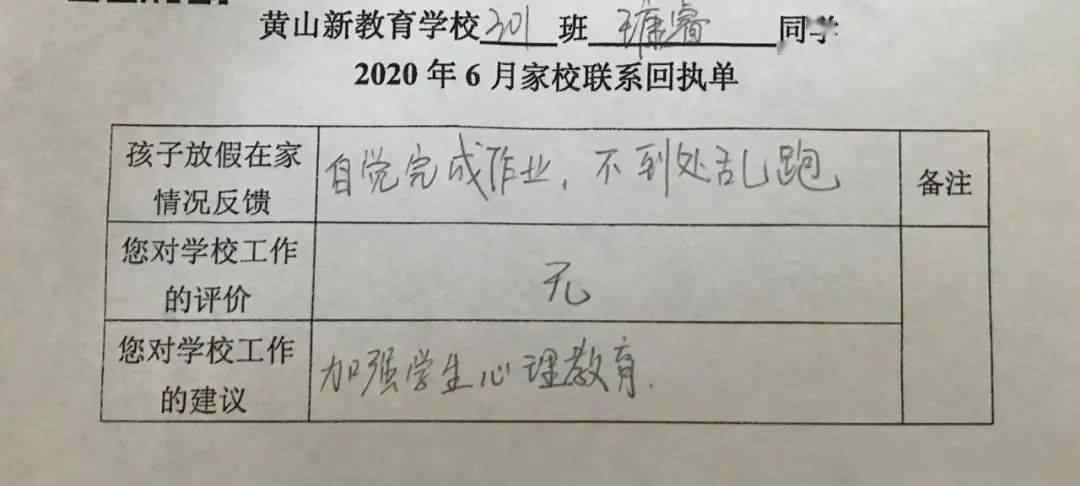 黄山新教育学校301班王康睿同学
2020年6月家校联系回执单
孩子放假在家
情况反馈
自觉完成作业，不到处乱跑
备注
您对学校工作
的评价
无
您对学校工作
的建议
加强学生心理教育.